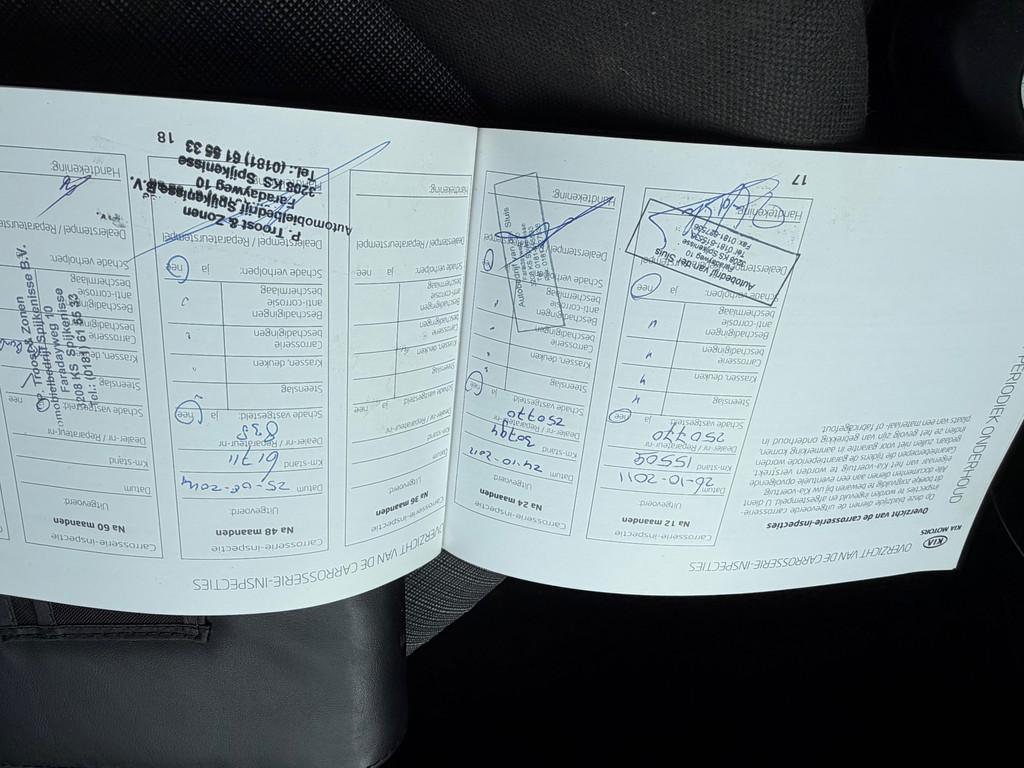 PERIODIEK ONDERHOUD
KIA
KIA MOTORS
OVERZICHT VAN DE CARROSSERIE-INSPECTIES
Overzicht van de carrosserie-inspecties
Op deze bladzijde dienen de uitgevoerde carrosserie-
inspecties te worden ingevuld en afgestempeld. U dient
dit boekje zorgvuldig te bewaren bij uw Kia-voertuig.
Alle documenten dienen aan een eventuele opvolgende
eigenaar van het Kia-voertuig te worden verstrekt.
Garantieclaims die tijdens de garantieperiode worden
gedaan zullen niet voor garantie in aanmerking komen,
indien ze het gevolg zijn van gebrekkig onderhoud in
plaats van een materiaal- of fabricagefout.
Carrosserie-inspectie
Na 12 maanden
Uitgevoerd
Datum 26-10-2011
Km-stand 15509
Dealer-nr / Reparateur-nr
250770
Schade vastgesteld: ja nee
Steenslag
Krassen, deuken
Carrosserie
beschadigingen
Beschadigingen
anti-corrosie
bescherming
Schade verholpen: ja nee
Dealerstempel / Reparateurstempel
Autobedrijf van der Sluis
Faradayweg 10
3208 KS Spijkenisse
Handtekening:
17
Carrosserie-inspectie
Na 24 maanden
Uitgevoerd
Datum 24-10-2012
Km-stand 30794
Dealer-nr / Reparateur-nr
250770
Schade vastgesteld: ja nee
Steenslag
Krassen, deuken
Carrosserie
beschadigingen
Beschadigingen
anti-corrosie
bescherming
Schade verholpen: ja nee
Dealerstempel
Autobedrijf van der Sluis
Handtekening:
OVERZICHT VAN DE CARROSSERIE-INSPECTIES
Carrosserie-inspectie
Na 36 maanden
Uitgevoerd
Datum
Km-stand
Dealer-nr / Reparateur-nr
Schade vastgesteld: ja nee
Steenslag
Krassen, deuken
Carrosserie
beschadigingen
Beschadigingen
anti-corrosie
bescherming
Schade verholpen: ja nee
Dealerstempel / Reparateurstempel
Handtekening:
Carrosserie-inspectie
Na 48 maanden
Uitgevoerd
Datum 25-08-2014
Km-stand 61711
Dealer-nr / Reparateur-nr
Schade vastgesteld: ja nee
Steenslag
Krassen, deuken
Carrosserie
beschadigingen
Beschadigingen
anti-corrosie
bescherming
Schade verholpen: ja nee
Dealerstempel / Reparateurstempel
P. Troost & Zonen
Automobielbedrijf Spijkenisse B.V.
Faradayweg 10
3208 KS Spijkenisse
Tel.: (0181) 61 55 33
18
Carrosserie-inspectie
Na 60 maanden
Uitgevoerd
Datum
Km-stand
Dealer-nr / Reparateur-nr
Schade vastgesteld: ja nee
Steenslag
Krassen, deuken
Carrosserie
beschadigingen
Beschadigingen
anti-corrosie
bescherming
Schade verholpen:
Dealerstempel / Reparateurstempel
P. Troost & Zonen
Automobielbedrijf Spijkenisse B.V.
Faradayweg 10
3208 KS Spijkenisse
Tel.: (0181) 61 55 33
Handtekening: